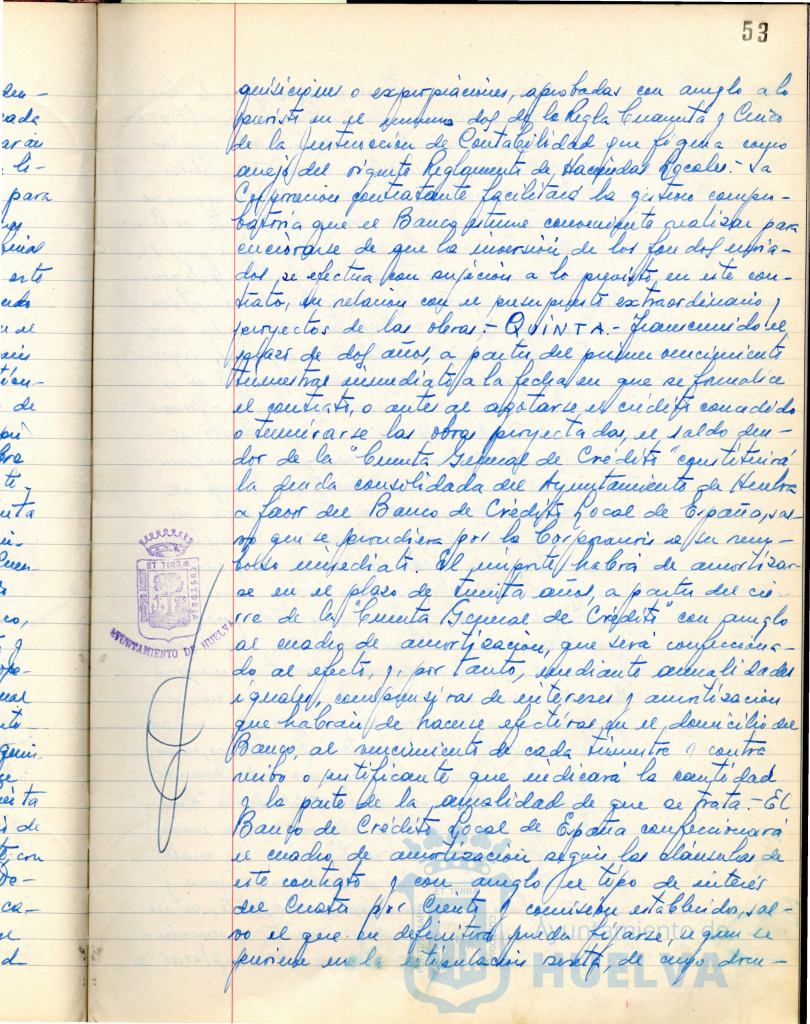 53
quisiciones o expropiaciones, aprobadas con arreglo a lo
previsto en el numero dos de la Regla Cuarenta y Cinco
de la Instrucción de Contabilidad que figura como
anejo del vigente Reglamento de Haciendas Locales.- La
Corporacion contratante facilitará la gestion compro-
batoria que el Banco estime conveniente realizar para
cerciorarse de que la inversión de los fondos envia-
dos se efectua con sujeción a lo previsto en este con-
trato, en relacion con el presupuesto extraordinario y
proyectos de las obras.- QUINTA.- Transcurrido el
plazo de dos años, a partir del primer vencimiento
trimestral inmediato a la fecha en que se formalice
el contrato, o antes al agotarse el crédito concedido
o terminarse las obras proyectadas, el saldo deu-
dor de la "Cuenta General de Crédito" constituirá
la deuda consolidada del Ayuntamiento de Huelva
a favor del Banco de Crédito Local de España, sal-
vo que se procediera por la Corporacion a su reem-
bolso inmediato. El importe habrá de amortizar
se en el plazo de treinta años, a partir del cie-
rre de la "Cuenta General de Crédito" con arreglo
al cuadro de amortización, que será confecciona-
do al efecto, y, por tanto, mediante anualidades
iguales, comprensivas de intereses y amortización
que habrán de hacerse efectivas en el domicilio del
Banco, al vencimiento de cada trimestre y contra
recibo o justificante que indicará la cantidad
y la parte de la anualidad de que se trata.- El
Banco de Crédito Local de España confeccionará
el cuadro de amortización según las cláusulas de
este contrato y con arreglo al tipo de interés
del Cuatro por Ciento y comision establecidos, sal-
vo el que en definitiva pueda fijarse, a que se
previene en la estipulacion sexta, de cuyo
AYUNTAMIENTO DE HUELVA
Ayuntamiento de
HUELVA